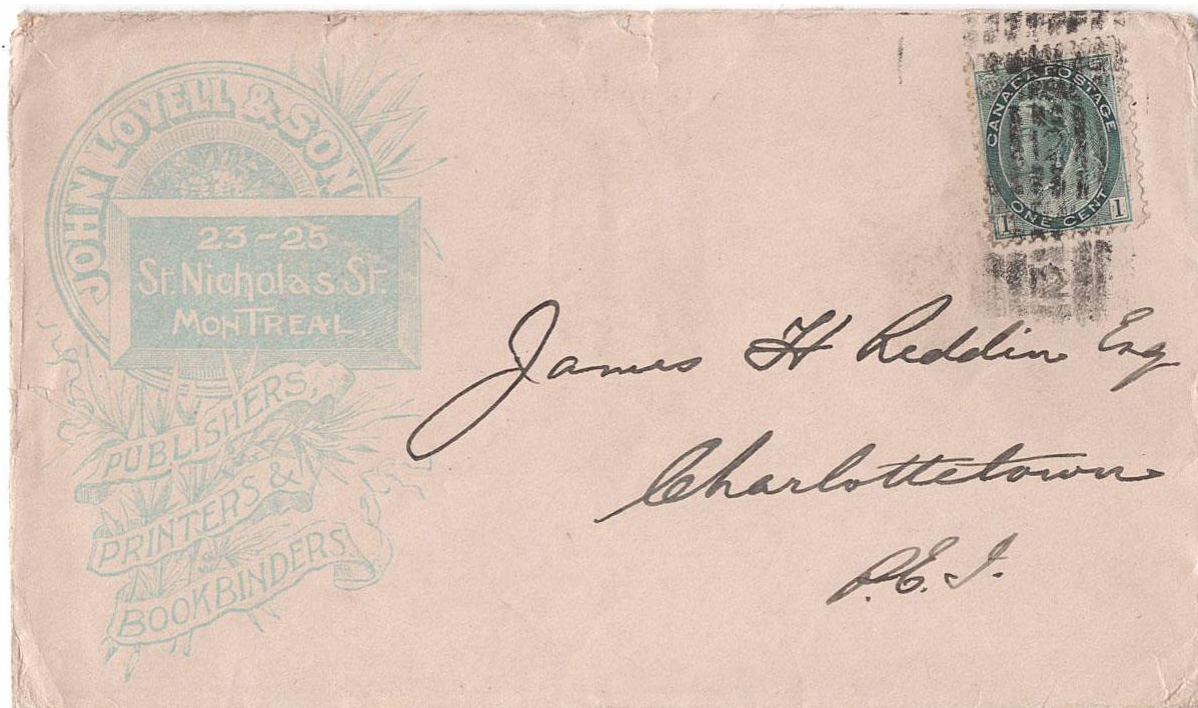 JOHN LOVELL & SON
23-25
St. Nicholas St.
MONTREAL.
PUBLISHERS,
PRINTERS &
BOOKBINDERS
CANADA POSTAGE
ONE CENT
1 1
James H Reddin Esq
Charlottetown
P.E.I.